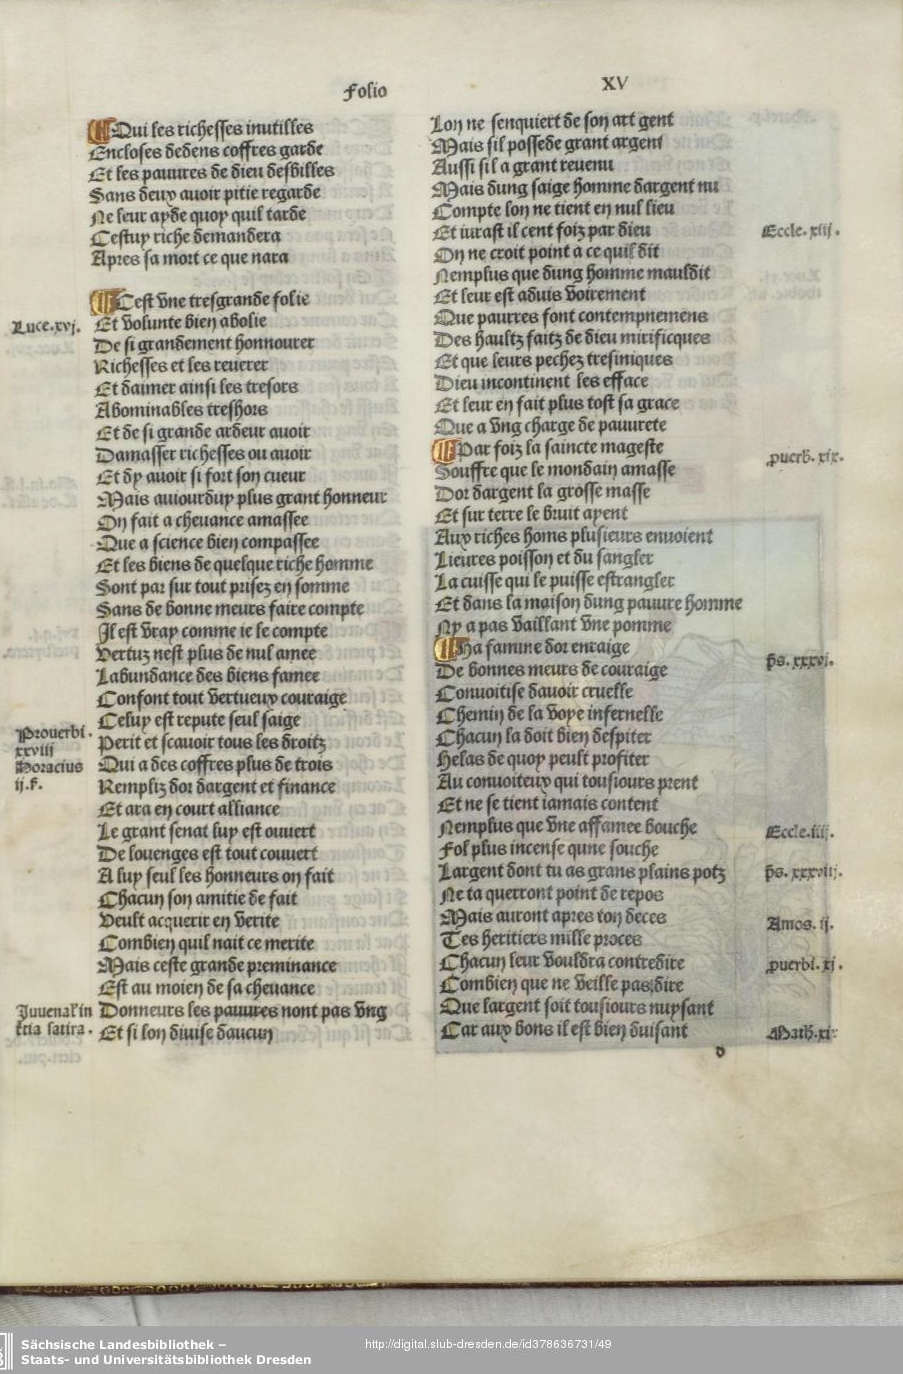 Folio
XV
Qui les richesses inutilles
Encloses dedens coffres garde
Et les pauures de dieu desbilles
Sans deux auoir pitie regarde
Ne leur ayde quoy quil tarde
Cestuy riche demandera
Apres sa mort ce que nara
Cest vne tresgrande folie
Luce.xvj.
Et volunte bien abolie
De si grandement honnourer
Richesses et les reuerer
Et daimer ainsi les tresors
Abominables treshors
Et de si grande ardeur auoir
Damasser richesses ou auoir
Et dy auoir si fort son cueur
Mais auiourduy plus grant honneur
On fait a cheuance amassee
Que a science bien compassee
Et les biens de quelque riche homme
Sont par sur tout prisez en somme
Sans de bonne meurs faire compte
Il est vray comme ie le compte
Vertuz nest plus de nul amee
Labundance des biens famee
Confont tout vertueux couraige
Celuy est repute seul saige
Prouerbi.
xxviij
Horacius
ij.k.
Perit et scauoir tous les droitz
Qui a des coffres plus de trois
Rempliz dor dargent et finance
Et ara en court alliance
Le grant senat luy est ouuert
De louenges est tout couuert
A luy seul les honneurs on fait
Chacun son amitie de fait
Veult acquerir en verite
Combien quil nait ce merite
Mais ceste grande preminance
Est au moien de sa cheuance
Iuuenal in
ktia satira.
Donneurs les pauures nont pas vng
Et si lon diuise daucun
Lon ne senquiert de son art gent
Mais sil possede grant argent
Aussi sil a grant reuenu
Mais dung saige homme dargent nu
Compte lon ne tient en nul lieu
Et iurast il cent foiz par dieu
Eccle.xiij.
On ne croit point a ce quil dit
Nemplus que dung homme mauldit
Et leur est aduis voirement
Que paurres font contempnemens
Des haultz faitz de dieu mirificques
Et que leurs pechez tresiniques
Dieu incontinent les efface
Et leur en fait plus tost sa grace
Que a vng charge de pauurete
Par foiz la saincte mageste
puerb.xix.
Souffre que le mondain amasse
Dor dargent la grosse masse
Et sur terre le bruit ayent
Aux riches homs plusieurs enuoient
Lieures poisson et du sangler
La cuisse qui le puisse estrangler
Et dans la maison dung pauure homme
Ny a pas vaillant vne pomme
Ha famine dor enraige
ps.xxxvj.
De bonnes meurs de couraige
Conuoitise dauoir cruelle
Chemin de la voye infernelle
Chacun la doit bien despiter
Helas de quoy peult profiter
Au conuoiteux qui tousiours prent
Et ne se tient iamais content
Nemplus que vne affamee bouche
Eccle.iiij.
Fol plus incense qune souche
Largent dont tu as grans plains potz
ps.xxxviij.
Ne ta querront point de repos
Mais auront apres ton deces
Amos.ij.
Tes heritiers mille proces
Chacun leur vouldra contredire
puerbi.xj.
Combien que ne veille pas dire
Que largent soit tousiours nuysant
Car aux bons il est bien duisant
Math.xix
d
Sächsische Landesbibliothek –
Staats- und Universitätsbibliothek Dresden
http://digital.slub-dresden.de/id378636731/49